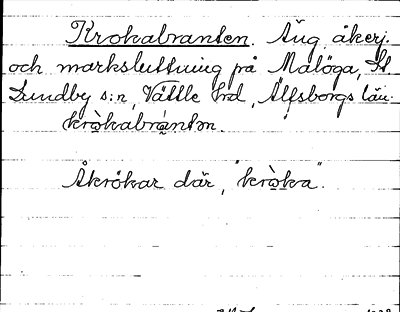 Krokabranten. Äug åkerj.
och marksluttning på Malöga, St.
Lundby s:n, Vättle hrd, Älfsborgs län.
kròkabràntən.
Åkrökar där, "kròka".